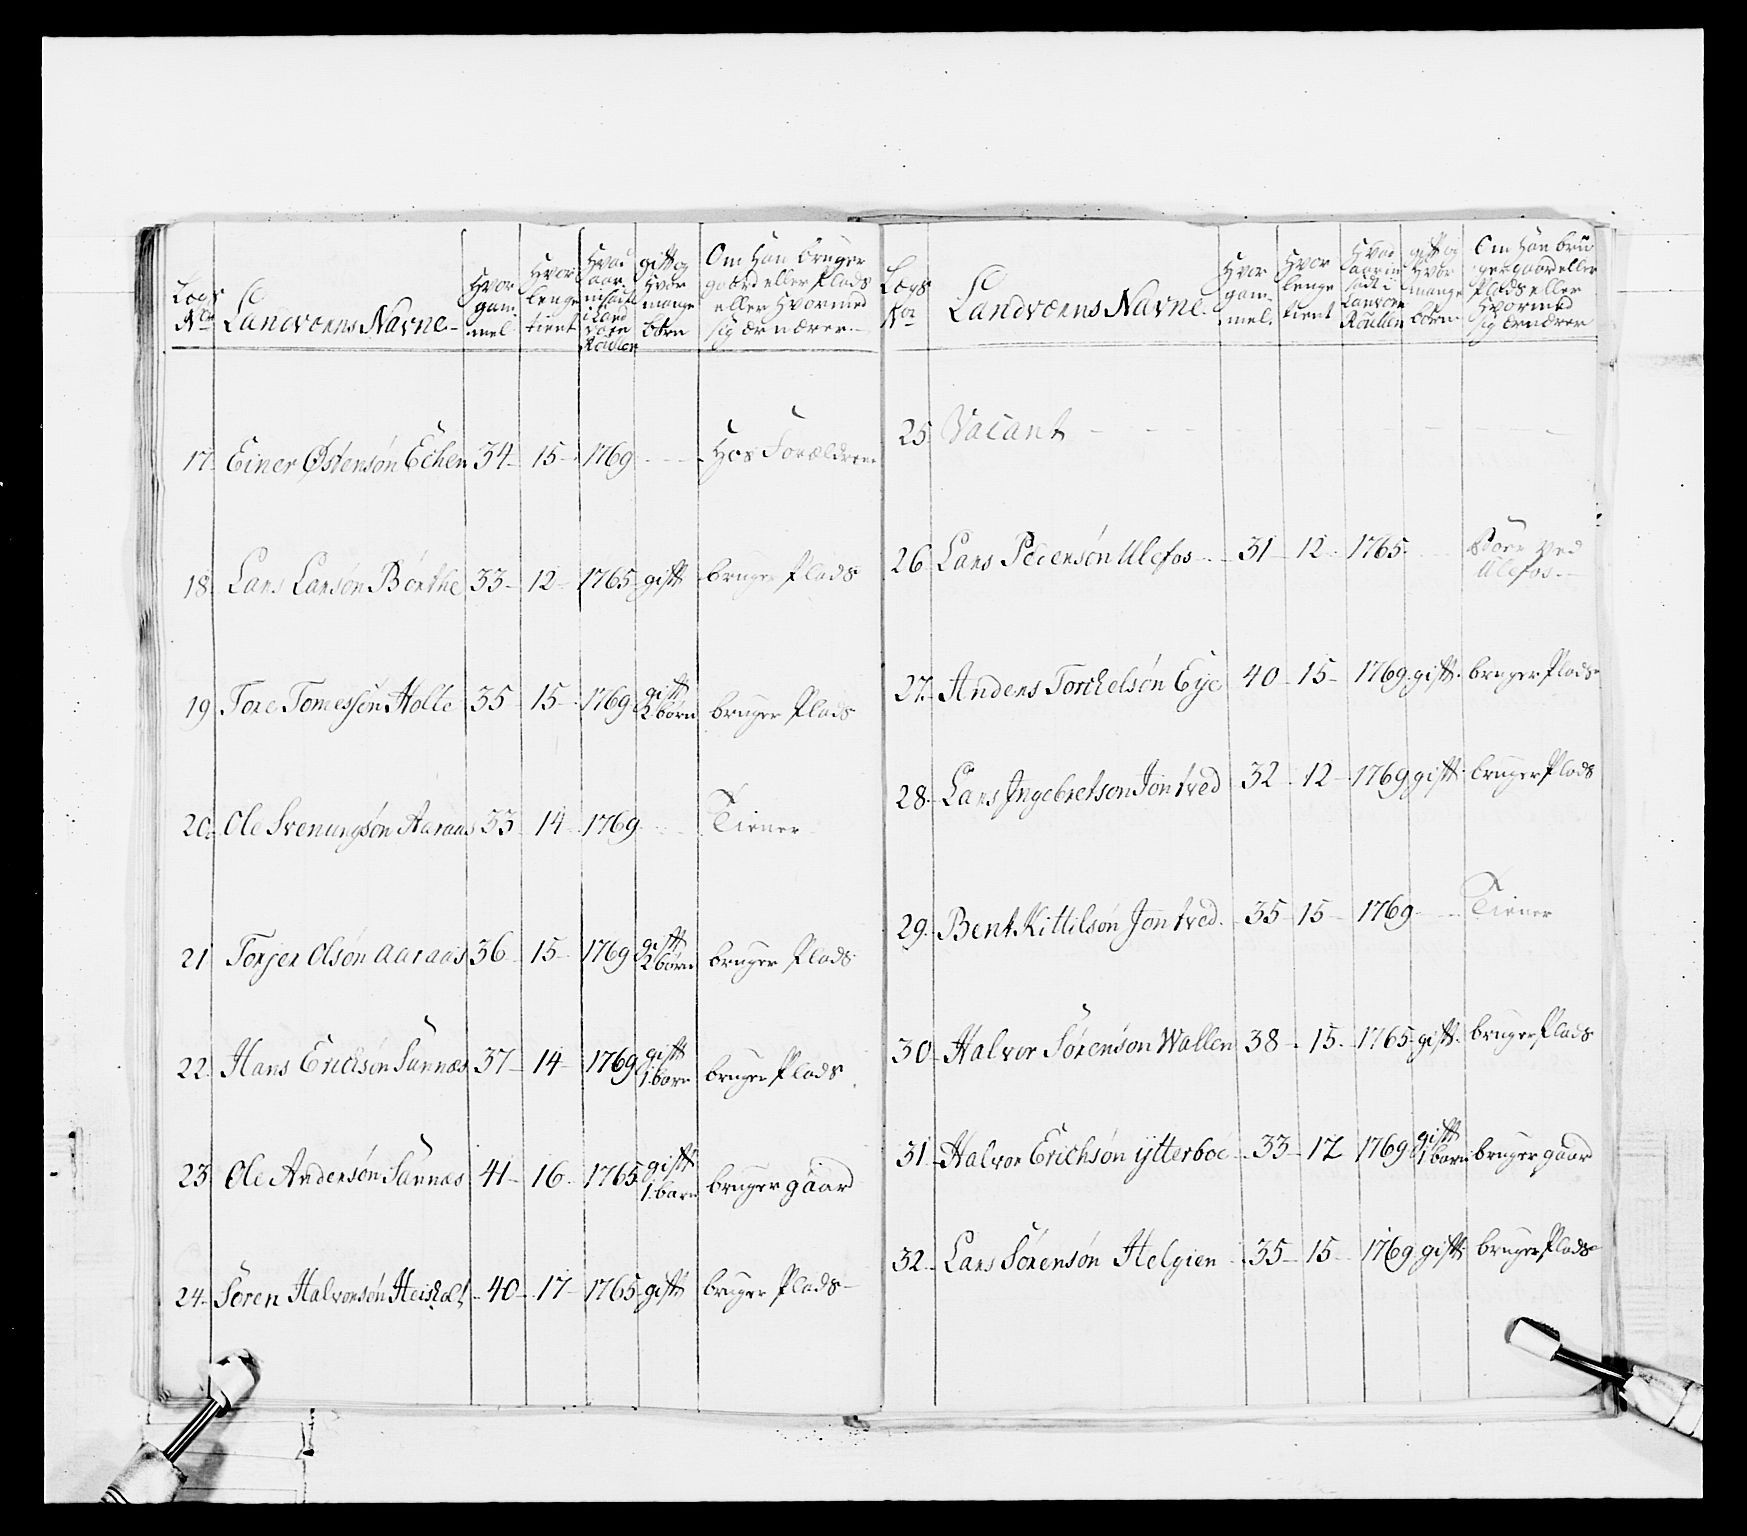 Lægs No Landværns Navne Hvor gammel Hvor lenge tient Hvad aar indsadt i Land værn Roullen gift og Hvor mange børn Om Han bruger gaard eller Plads eller Hvormed sig ærnærer
17. Einer Østensøn Echen 34 15 1769 Hos Forældrene
18. Lars Larsøn Børthe 33 12 1765 gift bruger Plads
19 Tore Tomessøn Holte 35 15 1769 gift 2 børn bruger Plads
20. Ole Svenungsøn Aaraas 33 14 1769 Tiener
21 Torjer Olsøn Aaraas 36 15 1769 gift 2 børn bruger Plads
22. Hans Erichsøn Sannæs 37 14 1769 gift 1 barn bruger Plads
23. Ole Andersøn Sannæs 41 16 1765 gift 1 barn bruger gaard
24. Søren Halvorsøn Heisholt 40 17 1765 gift bruger Plads
Lægs No Landværns Navne Hvor gammel. Hvor lenge tient Hvad aar indsadt i Landværn Roullen gift og Hvor mange børn Om Han bruger gaard eller Plads eller Hvormed sig ærnærer
25. Vacant
26. Lars Pedersøn Ulefos 31 12 1765 ved Ulefos
27. Anders Torchelsøn Eye 40 15 1769 gift bruger Plads
28. Lars Ingebretsøn Jontved 32 12 1769 gift bruger Plads
29. Bent Kittilsøn Jontved 35 15 1769 Tiener
30. Halvor Sørensøn Wallen 38 15 1765 gift bruger Plads
31. Halvor Erichsøn ytterboe 33 12 1769 gift 1 barn bruger gaard
32. Lars Sørensøn Helgien 35 15 1769 gift bruger Plads